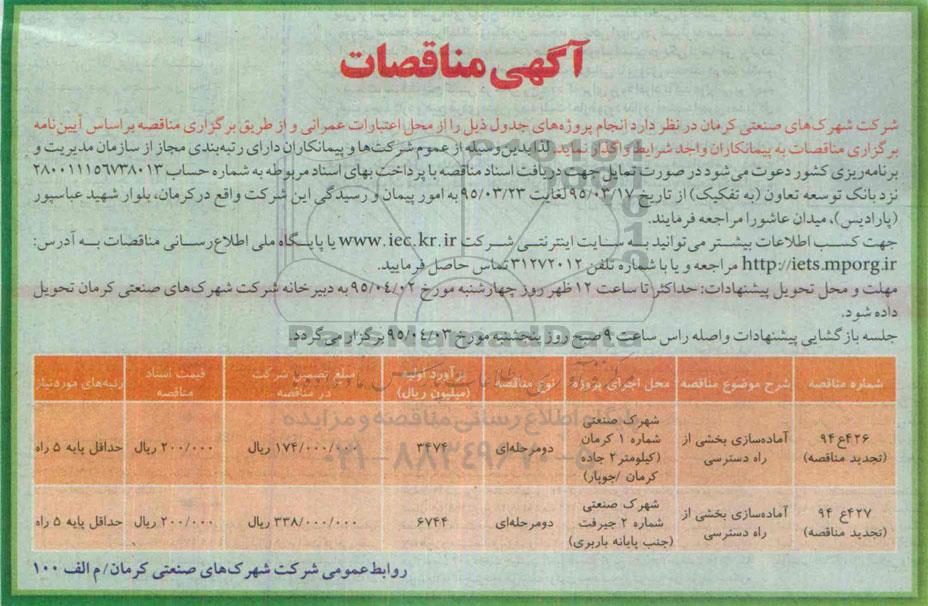 آگهی مناقصات
شرکت شهرک‌های صنعتی کرمان در نظر دارد انجام پروژه‌های جدول ذیل را از محل اعتبارات عمرانی و از طریق برگزاری مناقصه براساس آیین‌نامه
برگزاری مناقصات به پیمانکاران واجد شرایط واگذار نماید. لذا بدین‌وسیله از عموم شرکت‌ها و پیمانکاران دارای رتبه‌بندی مجاز از سازمان مدیریت و
برنامه‌ریزی کشور دعوت می‌شود در صورت تمایل جهت دریافت اسناد مناقصه با پرداخت بهای اسناد مربوطه به شماره حساب ۲۸۰۰۱۱۱۵۶۷۳۸۰۱۳
نزد بانک توسعه تعاون (به تفکیک) از تاریخ ۹۵/۰۳/۱۷ لغایت ۹۵/۰۳/۲۳ به امور پیمان و رسیدگی این شرکت واقع در کرمان، بلوار شهید عباسپور
(پارادیس)، میدان عاشورا مراجعه فرمایند.
جهت کسب اطلاعات بیشتر می‌توانید به سایت اینترنتی شرکت www.iec.kr.ir یا پایگاه ملی اطلاع‌رسانی مناقصات به آدرس:
http://iets.mporg.ir مراجعه و یا با شماره تلفن ۳۱۲۷۲۰۱۲ تماس حاصل فرمایید.
مهلت و محل تحویل پیشنهادات: حداکثر تا ساعت ۱۲ ظهر روز چهارشنبه مورخ ۹۵/۰۴/۰۲ به دبیرخانه شرکت شهرک‌های صنعتی کرمان تحویل
داده شود.
جلسه بازگشایی پیشنهادات واصله راس ساعت ۹ صبح روز پنجشنبه مورخ ۹۵/۰۴/۰۳ برگزار می‌گردد.
شماره مناقصه شرح موضوع مناقصه محل اجرای پروژه نوع مناقصه برآورد اولیه (میلیون ریال) مبلغ تضمین شرکت در مناقصه قیمت اسناد مناقصه رتبه‌های موردنیاز
۴۲۶ع۹۴ (تجدید مناقصه) آماده‌سازی بخشی از راه دسترسی شهرک صنعتی شماره ۱ کرمان (کیلومتر ۲ جاده کرمان /جوپار) دومرحله‌ای ۳۴۷۴ ۱۷۴/۰۰۰/۰۰۰ ریال ۲۰۰/۰۰۰ ریال حداقل پایه ۵ راه
۴۲۷ع ۹۴ (تجدید مناقصه) آماده‌سازی بخشی از راه دسترسی شهرک صنعتی شماره ۲ جیرفت (جنب پایانه باربری) دومرحله‌ای ۶۷۴۴ ۳۳۸/۰۰۰/۰۰۰ ریال ۲۰۰/۰۰۰ ریال حداقل پایه ۵ راه
روابط‌عمومی شرکت شهرک‌های صنعتی کرمان/م الف ۱۰۰
پایگاه اطلاع رسانی مناقصه و مزایده